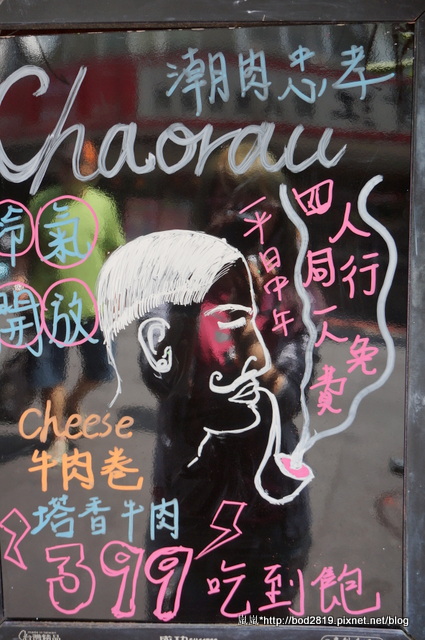 潮肉忠孝
Chaorou
冷氣
開放
平日中午
四人同行
一人免費
Cheese
牛肉卷
塔香牛肉
399 吃到飽
嵐嵐*http://bod2819.pixnet.net/blog